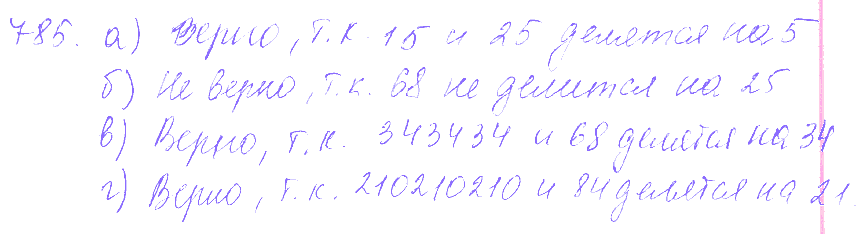 785. а) Верно, т.к. 15 и 25 делятся на 5
б) Не верно, т.к. 68 не делится на 25
в) Верно, т.к. 343434 и 68 делятся на 34
г) Верно, т.к. 210210210 и 84 делятся на 21.